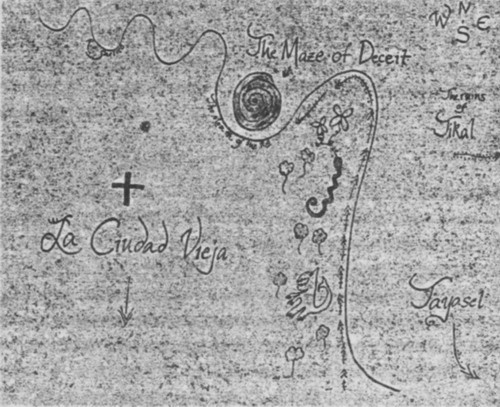 N
W E
S
The Maze of Deceit
The ruins
of
Tikal
La Ciudad Vieja
Tayasel